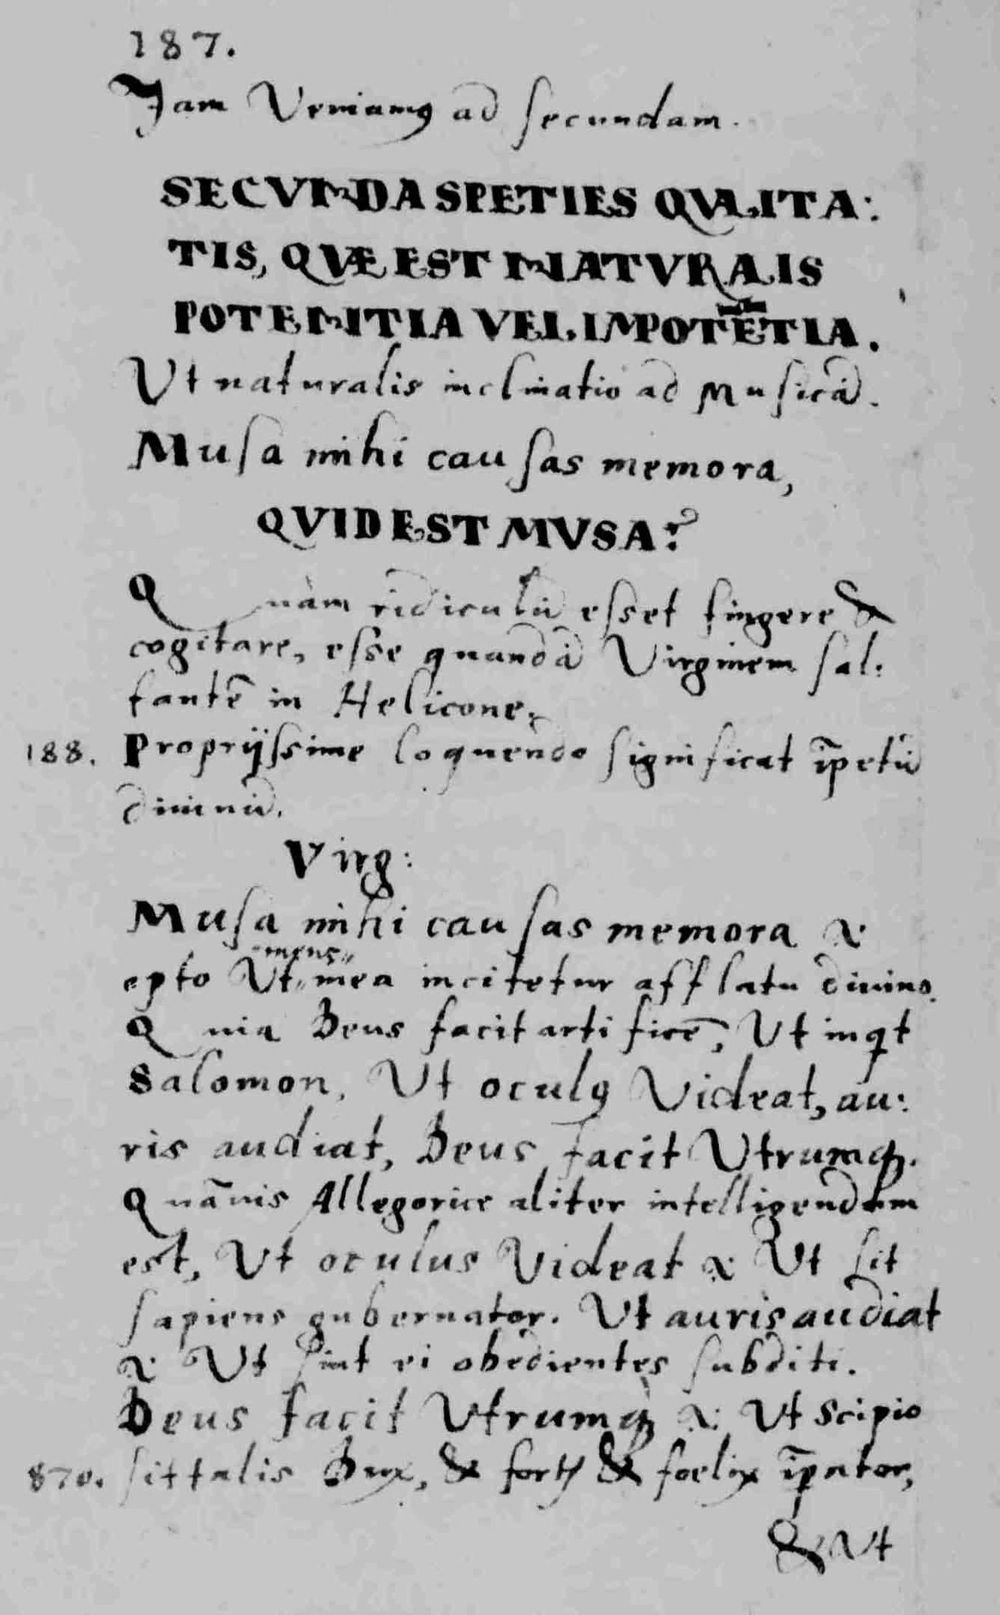 187.
Jam Veniamꝰ ad secundam.
SECVNDA SPETIES QVALITA:
TIS, QVÆ EST NATVRALIS
POTENTIA VEL IMPOTĒTIA.
Vt naturalis inclinatio ad Musicā.
Musa mihi causas memora,
QVID EST MVSA?
Quàm ridiculū esset fingere &
cogitare, esse quandā Virginem sal:
tantē in Helicone,
188. Proprijssime loquendo significat īpetū
diuinū.
Virg:
Musa mihi causas memora .i.
mens
opto Vt mea incitetur afflatu diuino.
Quia Deus facit artificē, Vt inqt
Salomon, Vt oculꝰ Videat, au:
ris audiat, Deus facit Vtrumqꝫ.
Quāuis Allegorice aliter intelligendum
est, Vt oculus Videat .i. Vt sit
sapiens gubernator. Vt auris audiat
.i. Vt sint ei obedientes subditi.
Deus facit Vtrumqꝫ .i. Vt Scipio
870. sit talis Dux, & fortis & foelix īpator,
& Vt